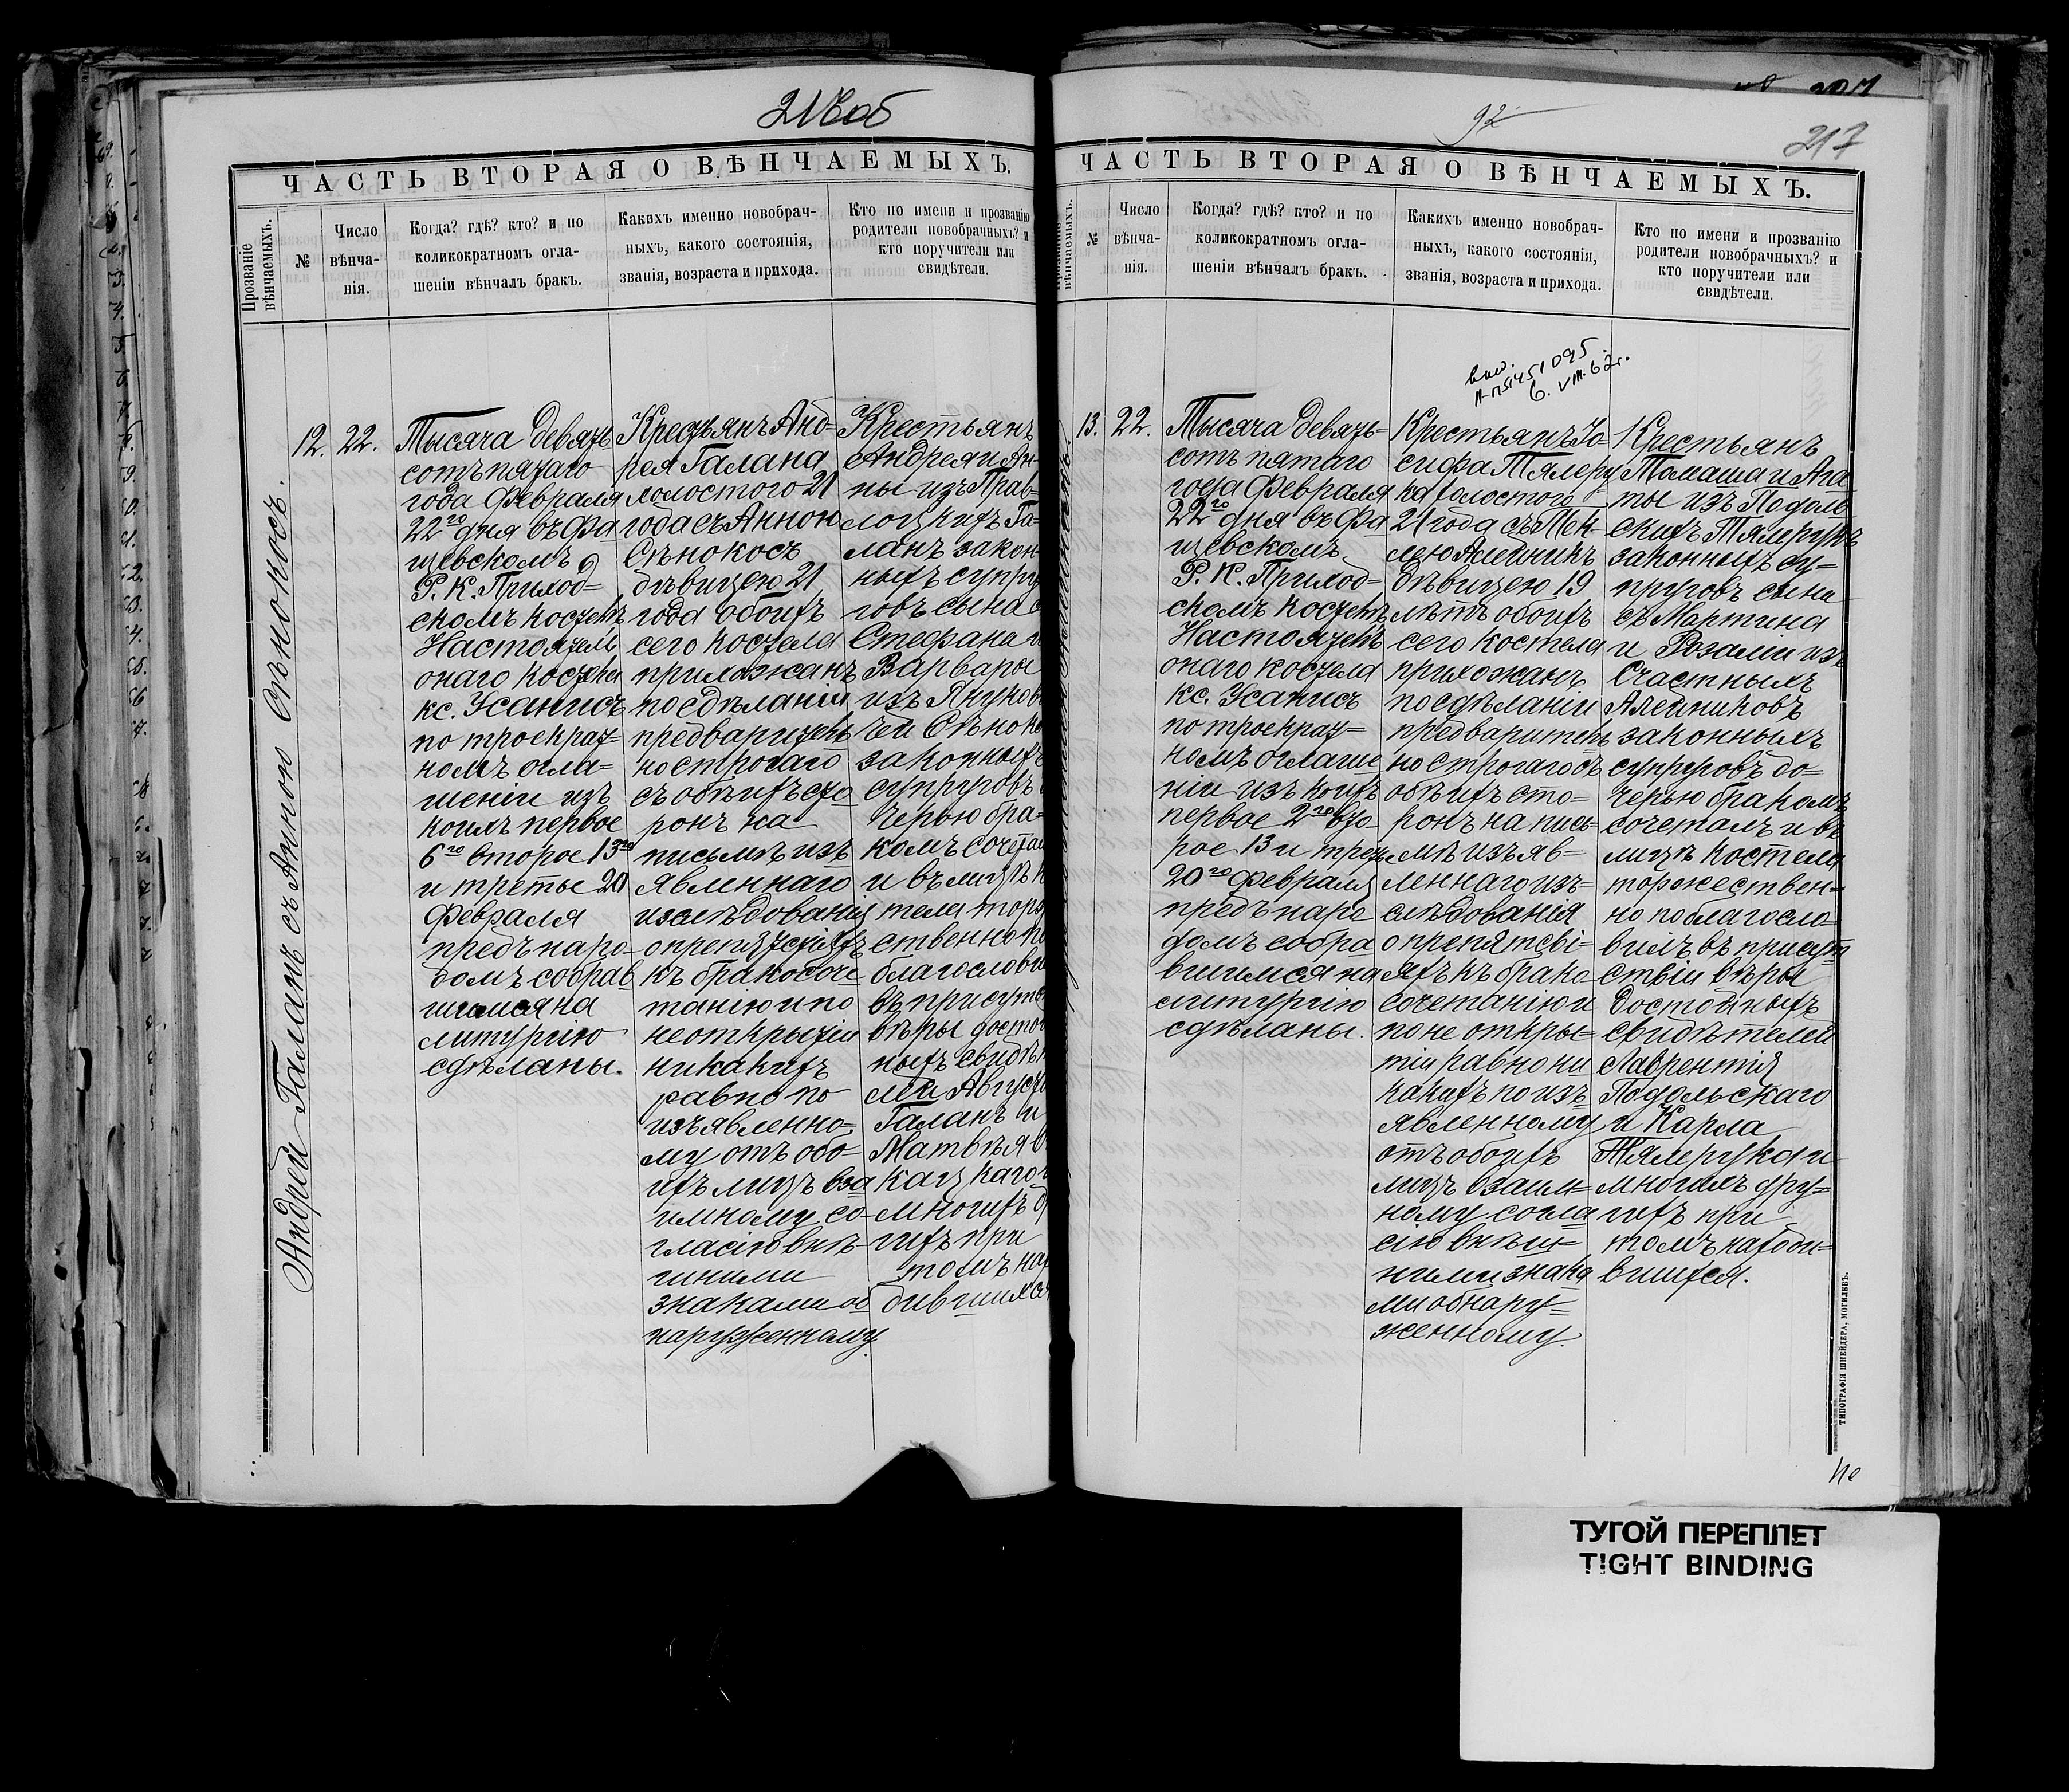 216 об
ЧАСТЬ ВТОРАЯ О ВѢНЧАЕМЫХЪ.
Прозваніе вѣнчаемыхъ.
№
Число вѣнча-
нія.
Когда? гдѣ? кто? и по
коликократномъ огла-
шеніи вѣнчалъ бракъ.
Какихъ именно новобрач-
ныхъ, какого состоянія,
званія, возраста и прихода.
Кто по имени и прозванію
родители новобрачныхъ? и
кто поручители или
свидѣтели.
Андрей Галанъ съ Анною Сѣнокосъ.
12.
22.
Тысяча девять
сотъ пятаго
года Февраля
22го дня въ Фа
щевскомъ
Р. К. Приход=
скомъ костелѣ
Настоятель
онаго костела
кс. Усанисъ
по троекрат=
номъ огла=
шеніи изъ
коихъ первое
6го второе 13го
и третье 20
Февраля
предъ наро-
домъ собрав
шимся на
литургію
сдѣланы.
Крестьянъ Анд=
рея Галана
холостого 21
года съ Анною
Сѣнокосъ
дѣвицею 21
года обоихъ
сего костела
прихожанъ
по сдѣланіи
предварительно
но строгаго
съ обѣихъ сто
ронъ на
письмѣ изъ
явленнаго
изслѣдованія
о препятствіяхъ
къ бракосоче
танію и по
неоткрытіи
никакихъ
равно по
изъявленно=
му отъ обо-
ихъ лицъ вза
имному со-
гласію внѣ-
шними
знаками об
наруженному
Крестьянъ
Андрея и Ан-
ны изъ Прав=
лоцкихъ Га=
ланъ закон
ныхъ супру
говъ сына
Стефана и
Варвары
изъ Янукови
чей Сѣноко
законныхъ
супруговъ
черью бра=
комъ сочетал
и въ лицѣ к
тела торже
ственно по
благослови
въ присутс
вѣры досто
ныхъ свидѣт
лей Августи
Галанъ и
Матвѣя
кацкаго и
многихъ д
гихъ при
томъ нахо
дившихся
92
217
ЧАСТЬ ВТОРАЯ О ВѢНЧАЕМЫХЪ.
№
Число
вѣнча-
нія.
Когда? гдѣ? кто? и по
коликократномъ огла-
шеніи вѣнчалъ бракъ.
Какихъ именно новобрач-
ныхъ, какого состоянія,
званія, возраста и прихода.
Кто по имени и прозванію
родители новобрачныхъ? и
кто поручители или
свидѣтели.
6. VIII. 62г.
13.
22.
Тысяча девять=
сотъ пятаго
года Февраля
22го дня въ Фа
щевскомъ
Р. К. Приход=
скомъ костелѣ
Настоятель
онаго костела
кс. Усанисъ
по троекрат=
номъ оглаше
ніи изъ коихъ
первое 2го вто-
рое 13 и трет
20го Февраля
предъ наро
домъ собра
вшимся на
литургію
сдѣланы.
Крестьянъ Іо-
сифа Тялеру
ка холостого
21 года съ Тек-
лею Алейникъ
дѣвицею 19
лѣтъ обоихъ
сего костела
прихожанъ
по сдѣланіи
предварительно
но строгаго съ
обѣихъ сто=
ронъ на пись
мѣ изъяв=
леннаго изъ=
слѣдованія
о препятсві=
яхъ къ брако
сочетанію и
по не откры=
тіи равно ни
какихъ по изъ
явленному
отъ обоихъ
лицъ взаим=
ному согла
сію внѣш=
ними знака
ми обнару=
женному.
Крестьянъ
Томаша и Ага
ты изъ Подоль
скихъ Тялеруковъ
законныхъ су=
пруговъ сына
съ Мартина
и Розаліи изъ
Счастныхъ
Алейниковъ
законныхъ
супруговъ до=
черью бракомъ
сочеталъ и въ
лицѣ костела
торжествен=
но поблагосло-
вилъ въ присут
ствіи вѣры
Достойныхъ
свидѣтелей
Лаврентія
Подольскаго
и Карла
Тялерука и
многихъ дру=
гихъ при
томъ находи=
вшихся.
ТИПОГРАФІЯ ШНЕЙДЕРА, МОГИЛЕВЪ.
ТУГОЙ ПЕРЕПЛЕТ
TIGHT BINDING